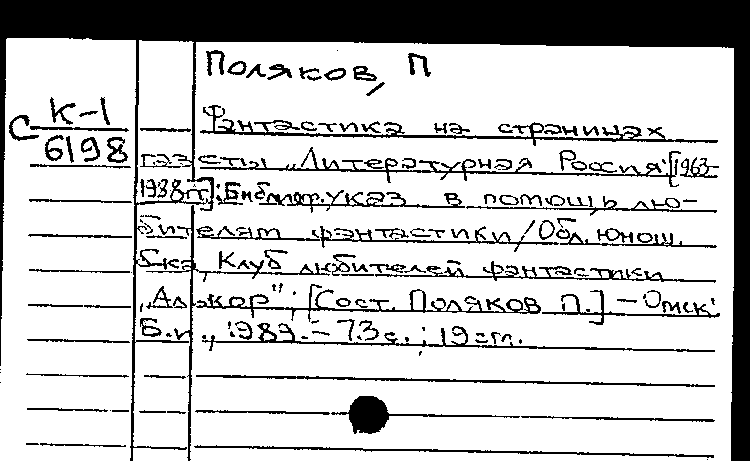 Поляков, П
С К-1
6198
Фантастика на страницах
газеты „Литературная Россия" [1963-
1988гг]: Библиогр. указ. в помощь лю-
бителям фантастики / Обл. юнош.
б-ка, Клуб любителей фантастики
„Алькор"; [Сост. Поляков П.] - Омск:
Б.и., 1989. - 73 с.; 19 см.